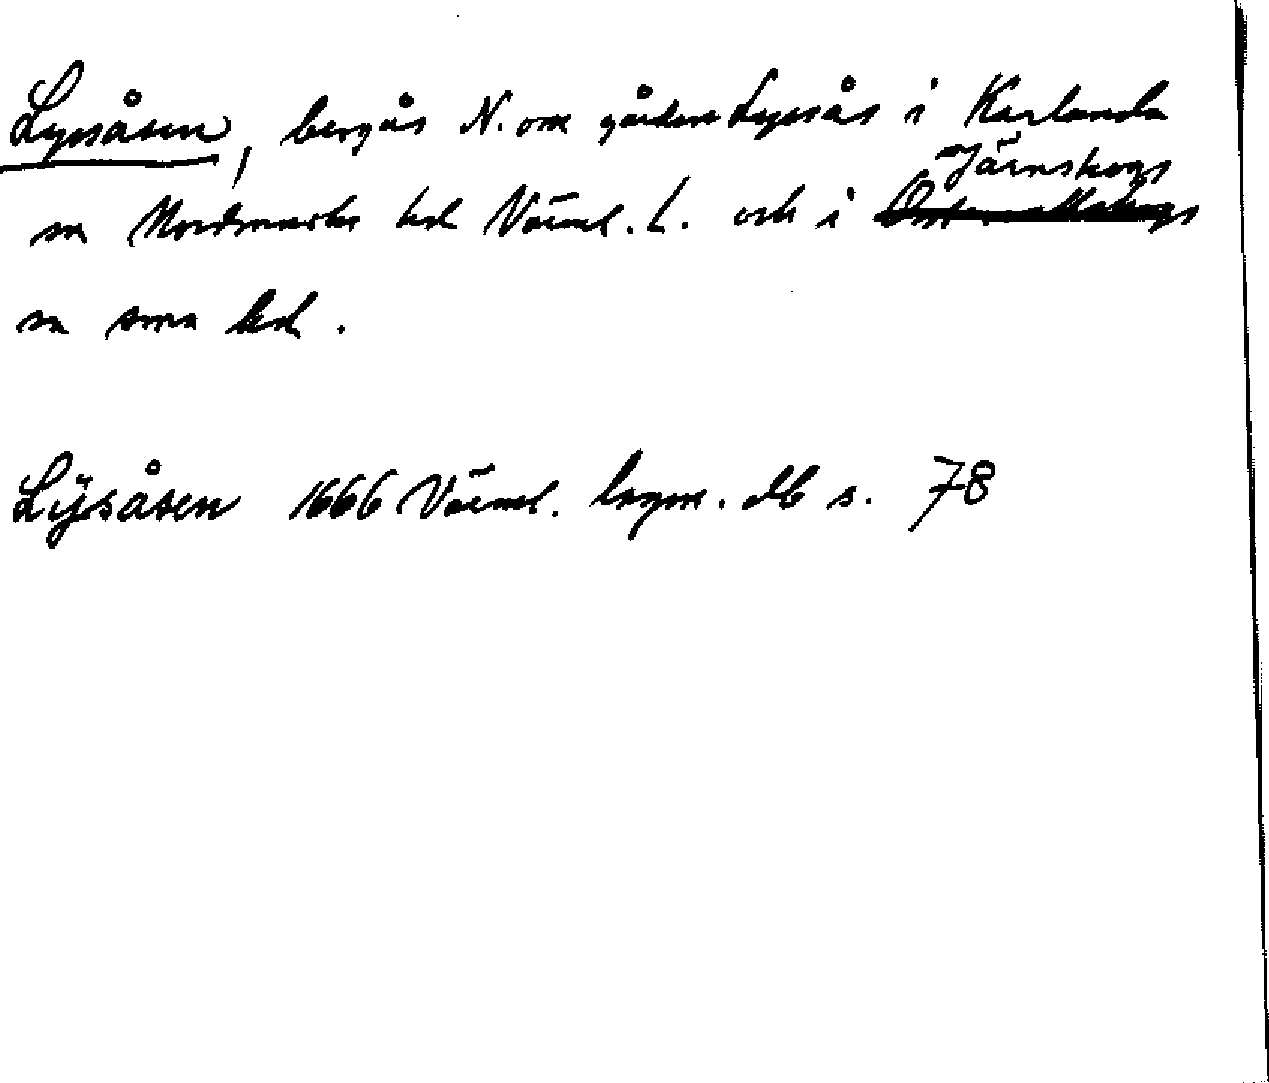 Lyssåsen, bergås N. om gården Lyssås i Karlanda
sn Nordmarks hd Värml. L. och i Järnskogs
sn sma hd.
Lÿsåsen 1666 Värml. lagm. db s. 78